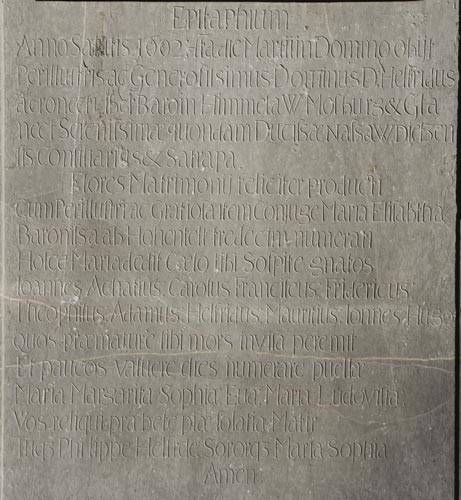 Epitaphium
Anno Salutis 1692 die Martij in Domino obijt
Perillustris ac Generosissimus Dominus D, Helfridus
ac Baro in Himmel
nec Serenissimæ quondam Ducissæ Nassaw, Dietzen
sis Consiliarius & Satrapa.
Flores Matrimonij feliciter producti
cum Perillustri ac Gratiosa item Conjuge Maria Elisabetha
Baronissa ab Hohenfelt tredecim numerati
Hosce Maria dedit Cælo sibi Sospite gnatos
Ioannes, Achatius, Carolus, Franciscus, Fridericus,
Theophilus, Adamus, Helfridus, Mauritius, Ionnes, Hugo
quos præmature sibi mors invisa peremit
Et paucos valuere dies numerare puellæ
Maria Margarita, Sophia, Eua, Maria, Ludovisia,
Vos reliqui præbete piæ solatia Matri
Tuqz Philippe Helfride, Sororqz Maria Sophia
Amen.